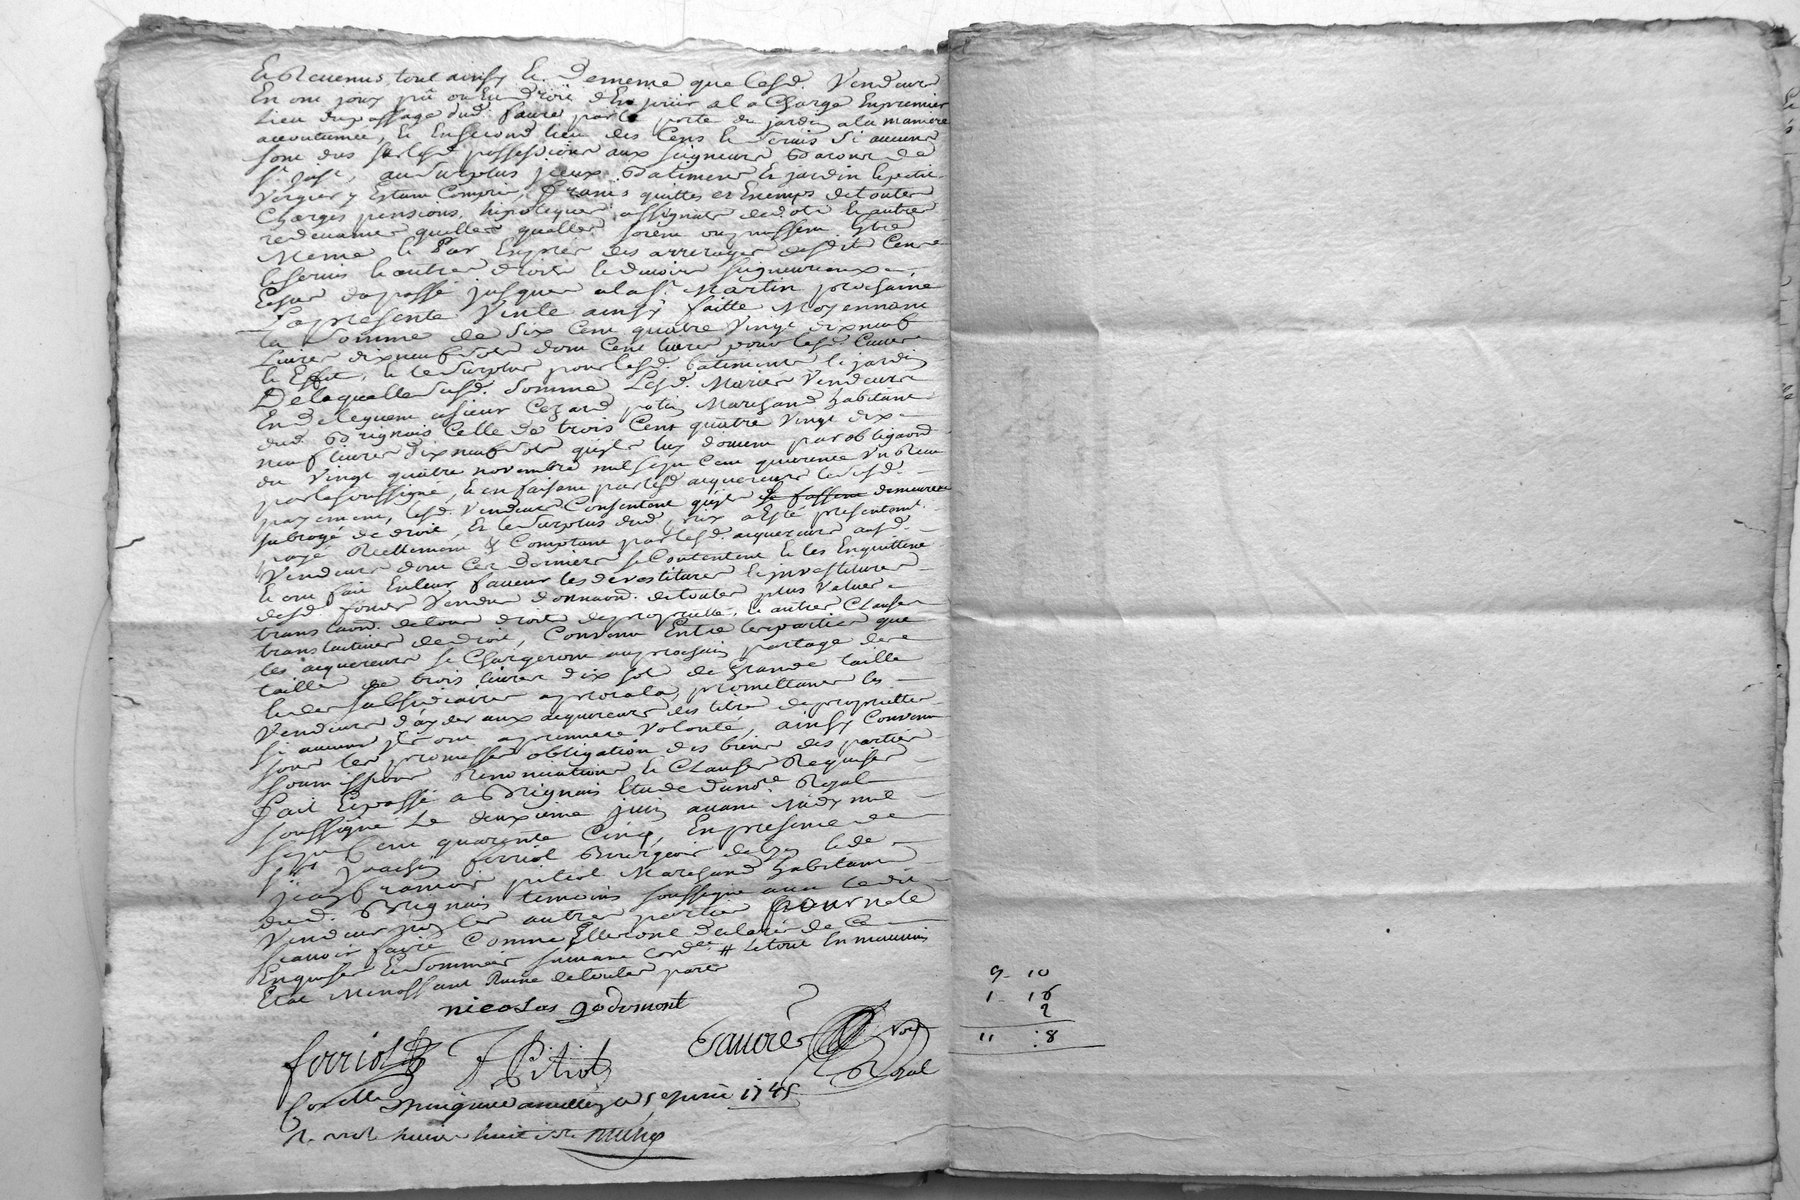 Et Revenus, tout ainsy Et Dememe que lesd. Vendeurs
En ont jouy pû ou Eu droit d'En jouir a la Charge En premier
lieu du passage dud. faure par la porte du jardin a la maniere
accoutumée, Et En second lieu des Cens Et Servis Si aucuns
sont dus sur lesd. possessions aux seigneurs Barons de
St. au Surplus yceux Batiments Et jardin le petit
Vergier y Estant Compris, francs quittes et Exemps de toutes
Charges pensions, hipoteques, assignats de dots Et autres
redevances quelles qu'elles soient ou puissent Etre
Meme Et Par Exprès des arrerages desdits Cens
Et servis Et autres droits Et devoirs seigneuriaux
Echus du passé jusques a la St. Martin prochaine
La presente Vente ainsy faitte Moyennant
la Somme de Six Cent quatre Vingt dix neuf
Livres dix neuf sols dont Cent livres pour lesd.
Et Effets, Et le Surplus pour lesd. batiments Et jardin
De laquelle susd. Somme Lesd. Mariés Vendeurs
En deleguent a sieur Cezard potin Marchand habitant
dud. Brignais Celle de trois Cent quatre Vingt dix
neuf livres dix neuf sols qu'ils luy doivent par obligaon.
du Vingt quatre novembre mil sept Cent quarente Un Receu
par le soussigné, Et en faisant par lesd. acquereurs led.
payement, lesd. Vendeurs Consentent qu'ils se fassent demeurent
subrogé de droit, Et le Surplus dud. prix a Esté presentemt.
payé Reellement & Comptant par lesd. acquereurs ausd.
Vendeurs dont Ces Derniers se Contentent Et les En quittent
Et ont fait En leur faveur les devestitures Et investitures
desd. fonds Vendus donnaon. de toutes plus Values
translaon. de tous droits de proprieté, Et autres Clauses
translatives de droit, Convenu Entre les parties que
les acquereurs se Chargeront au prochain partage de
taille de trois livres dix sol de Grande taille
Et des subsidiaires a prorata, promettant les
Vendeurs d'ayder aux acquereurs des titres de proprietter
si aucuns ils ont a premiere Volonté, ainsy Convenu
sous les promesses obligation des biens des parties
soumissions Renonciations Et Clauses Requises
fait Et passé a Brignais Etude du nore. Royal
soussigné Le deuxieme juin avant Midy mil
sept Cent quarente Cinq, En presence de
Sr. Joachin ferriol Bourgeois
jean francois pitiot Marchand habitant
dud. Brignais temoins soussigné avec ledit
Vendeur non les autres parties pour ne le
scavoir faire Comme Elles ont Declaré de Ce
Enquises Et Sommés suivant l'ordce. # le tout En mauvais
Etat Menassant Ruine de toutes parts
nicolas godomont
ferriol
F Pitiot
faure
nore
Royal
a Millery le 5e juin 1745
R. trois livres huit sols
9 - 10
1 - 16
2
11 : 8